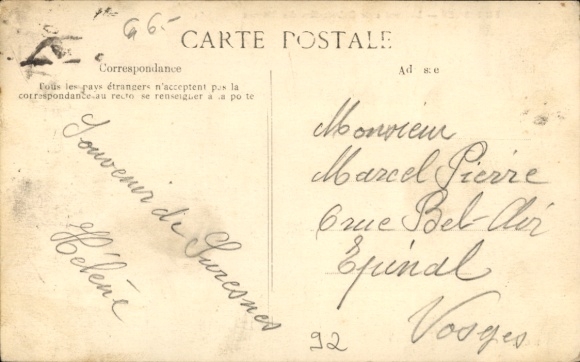 G 6.-
CARTE POSTALE
Correspondance
Tous les pays étrangers n'acceptent pas la
correspondance au recto, se renseigner à la poste
Souvenir de Suresnes
Hélène
Adresse
Monsieur
Marcel Pierre
6 rue Bel-Air
Epinal
Vosges
92